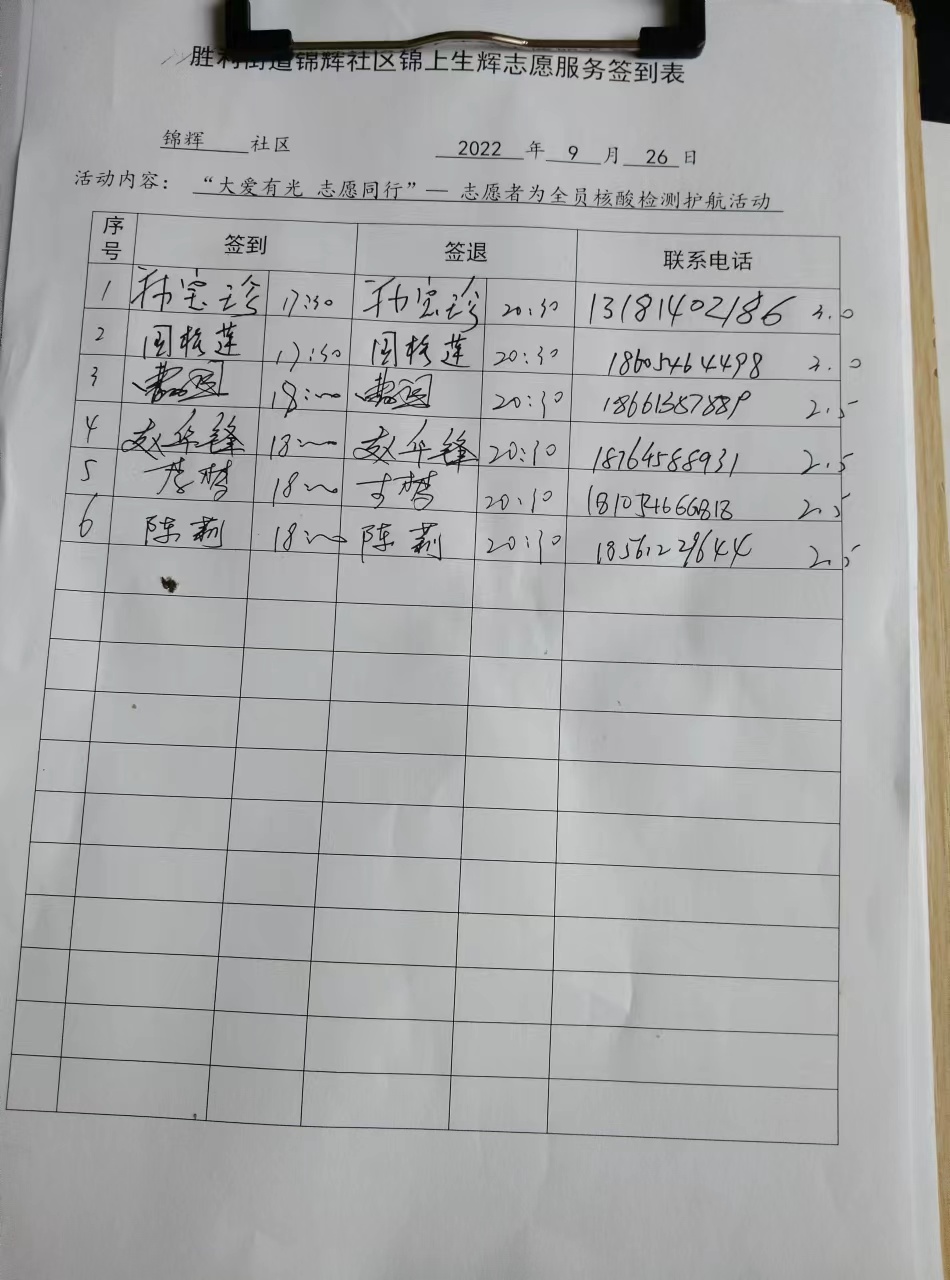 胜利街道锦辉社区锦上生辉志愿服务签到表
锦辉 社区 2022 年 9 月 26 日
活动内容： “大爱有光 志愿同行”— 志愿者为全员核酸检测护航活动
序号 签到 签退 联系电话
1 宝珍 17:30 宝珍 20:30 13181402186 3.0
2 周格莲 17:30 周格莲 20:30 18605464498 3.0
3 18:00 20:30 2.5
4 赵华锋 18:00 赵华锋 20:30 18764588931 2.5
5 李梦 18:00 李梦 20:30 2.5
6 陈莉 18:00 陈莉 20:30 18561229644 2.5